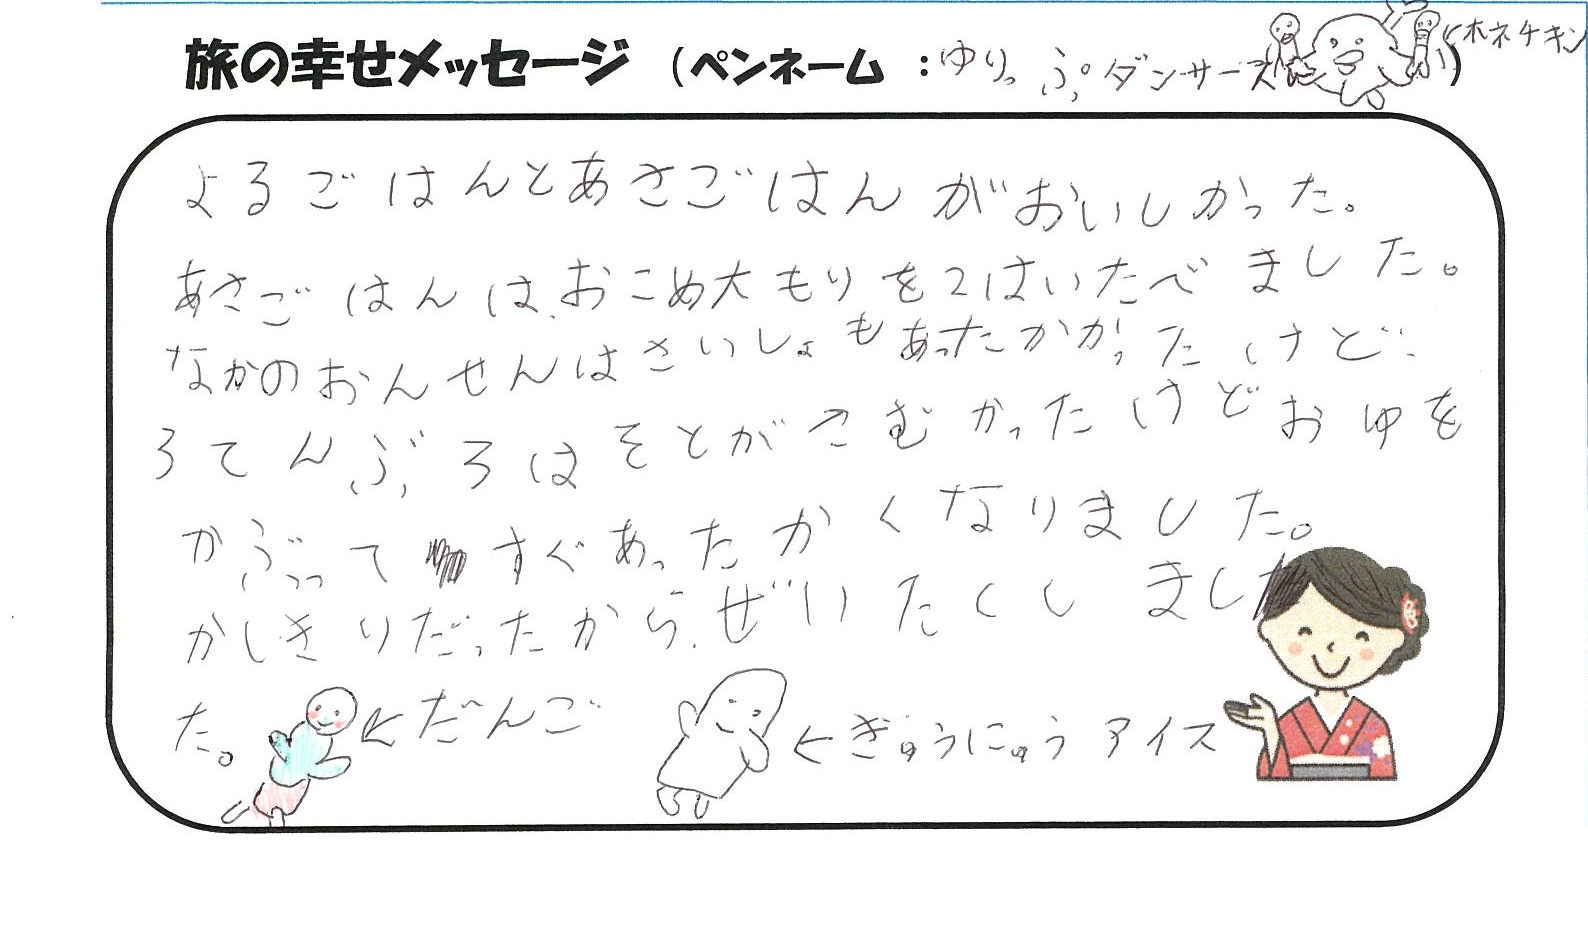 旅の幸せメッセージ （ペンネーム ：ゆりっぷダンサーズ）
←ホネチキン
よるごはんとあさごはんがおいしかった。
あさごはんは、おこめ大もりを2はいたべました。
なかのおんせんはさいしょもあったかかったけど、
ろてんぶろはそとがさむかったけどおゆを
かぶって すぐあったかくなりました。
かしきりだったから、ぜいたくしまし
た。 ←だんご ←ぎゅうにゅうアイス